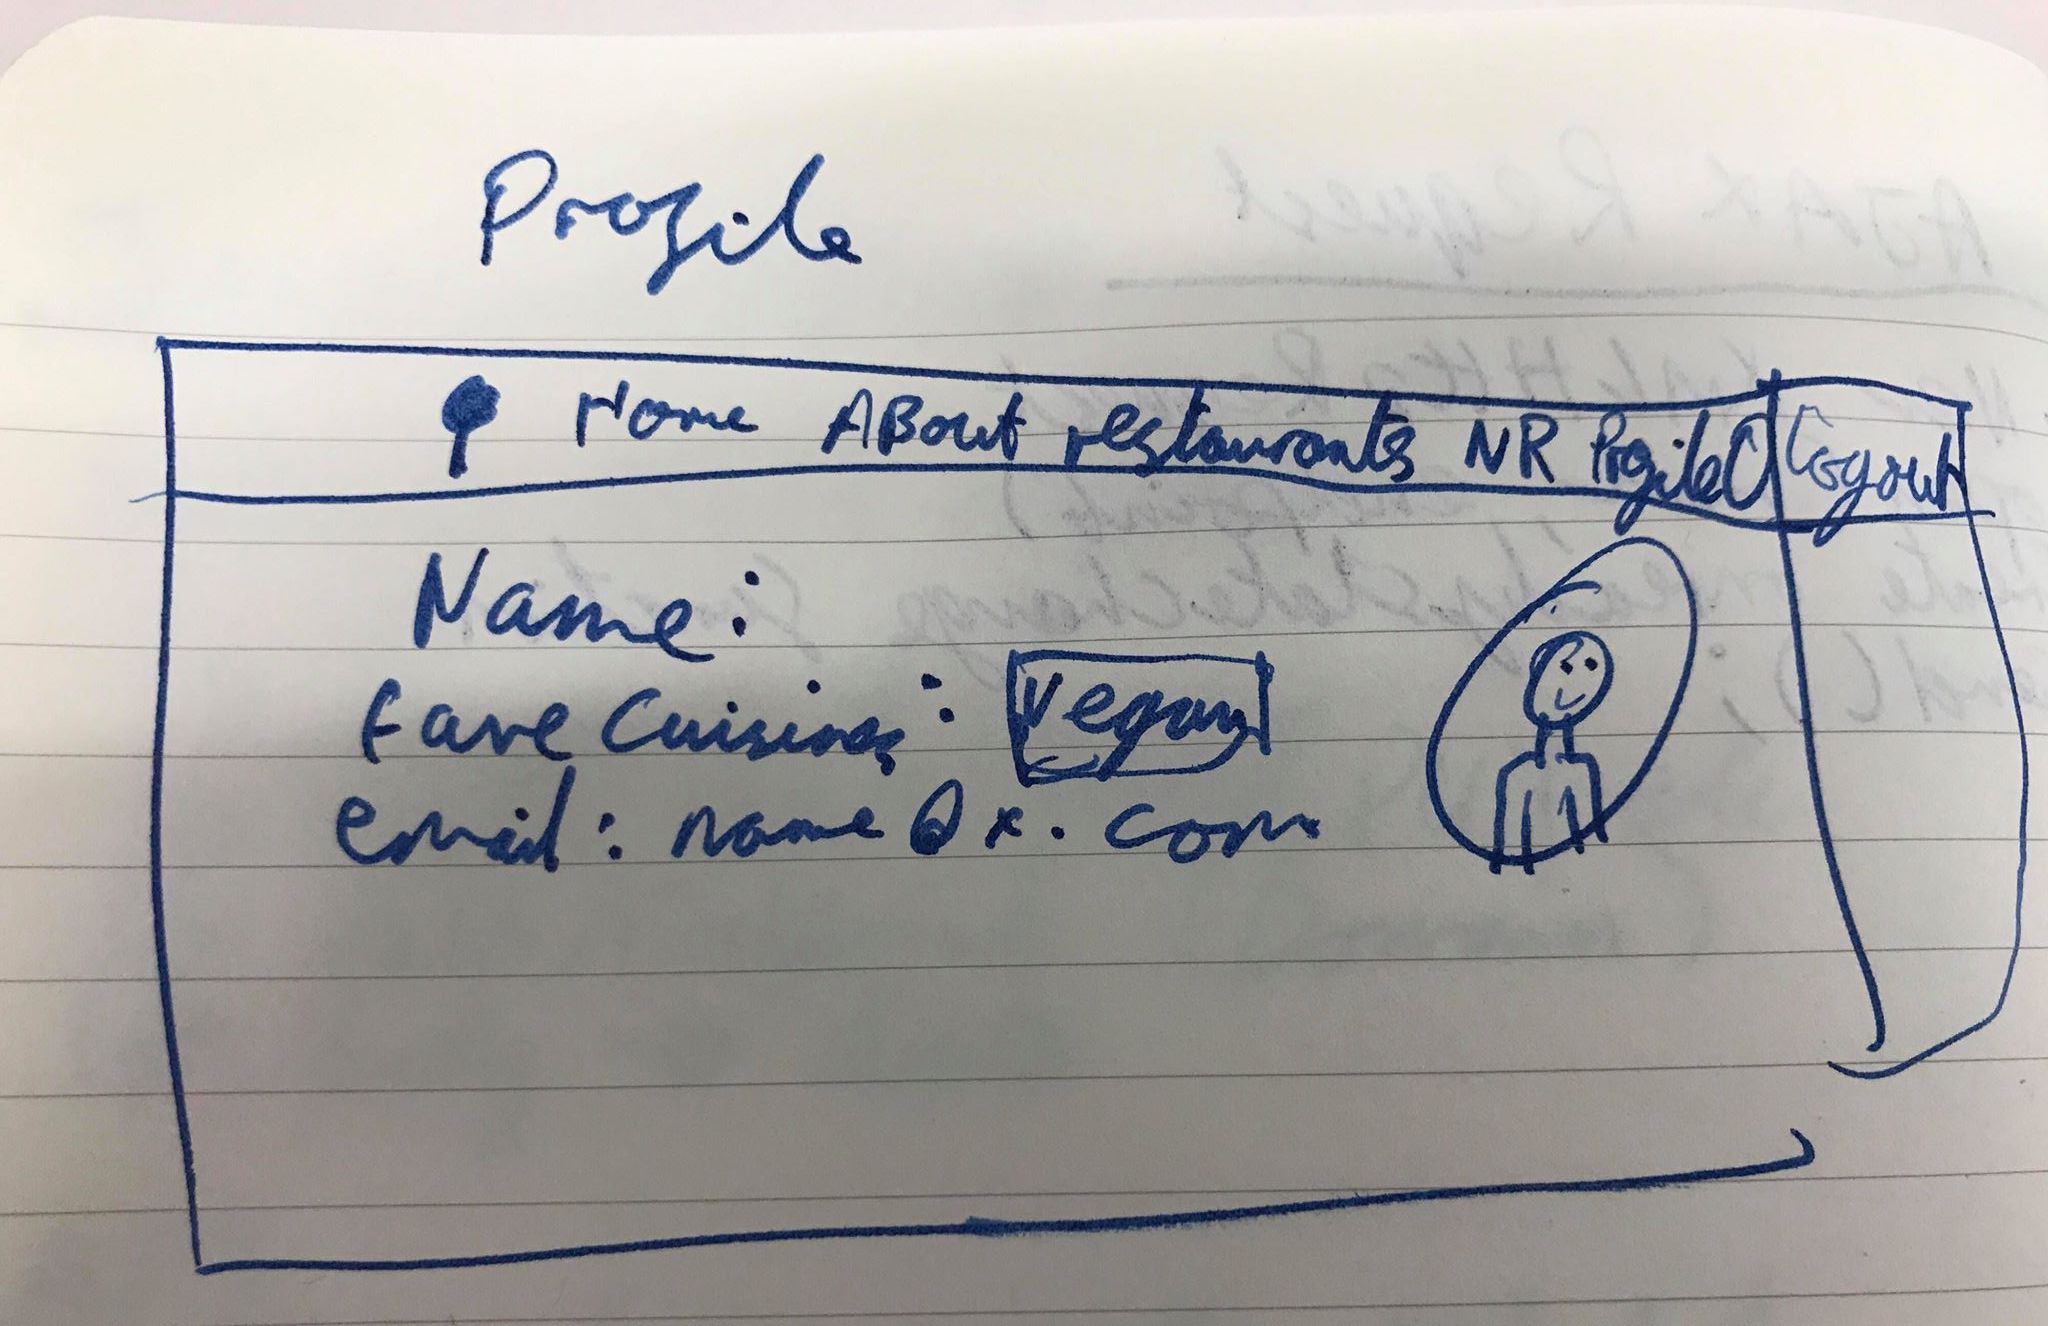 Profile
Home ABout restaurants NR Profile Logout
Name:
Fave Cuisines: Vegan
email: name@x.com
AJAX Request